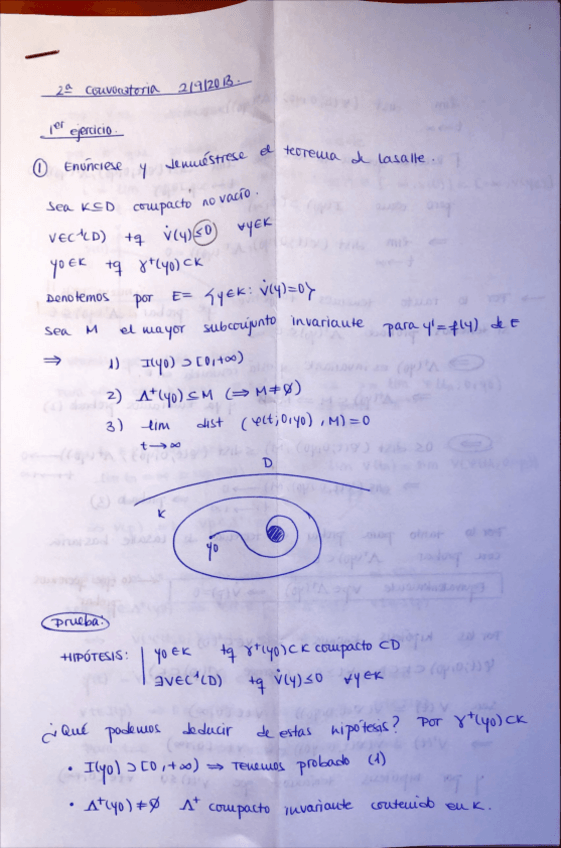 2ª Convocatoria 2/9/2013.
1er ejercicio.
① Enúnciese y demuéstrese el teorema de Lasalle.
Sea K⊆D compacto no vacío.
V∈C¹(D) tq V̇(y)≤0 ∀y∈K
y0∈K tq γ⁺(y0)⊂K
Denotemos por E= {y∈K: V̇(y)=0}
Sea M el mayor subconjunto invariante para y'=f(y) de E
⇒ 1) I(y0)⊃[0,+∞)
2) Λ⁺(y0)⊆M (⇒M≠∅)
3) lim dist (φ(t;0,y0), M)=0
t→∞
D
K
y0
Prueba:
HIPÓTESIS: | y0∈K tq γ⁺(y0)⊂K compacto ⊂D
∃V∈C¹(D) tq V̇(y)≤0 ∀y∈K
¿Qué podemos deducir de estas hipótesis? Por γ⁺(y0)⊂K
• I(y0)⊃[0,+∞) ⇒ Tenemos probado (1)
• Λ⁺(y0)≠∅ Λ⁺ compacto invariante contenido en K.